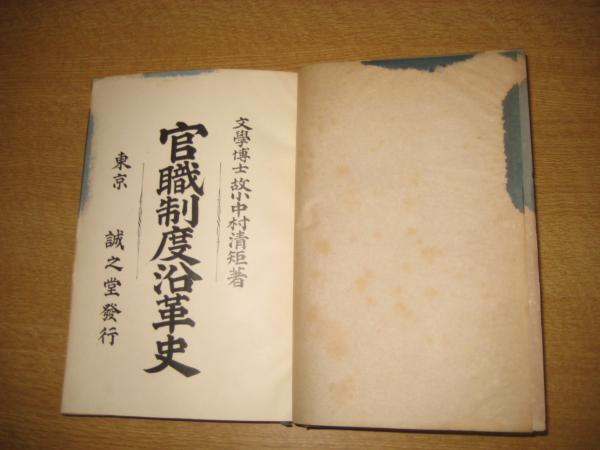 文學博士故小中村清矩著
官職制度沿革史
東京 誠之堂發行